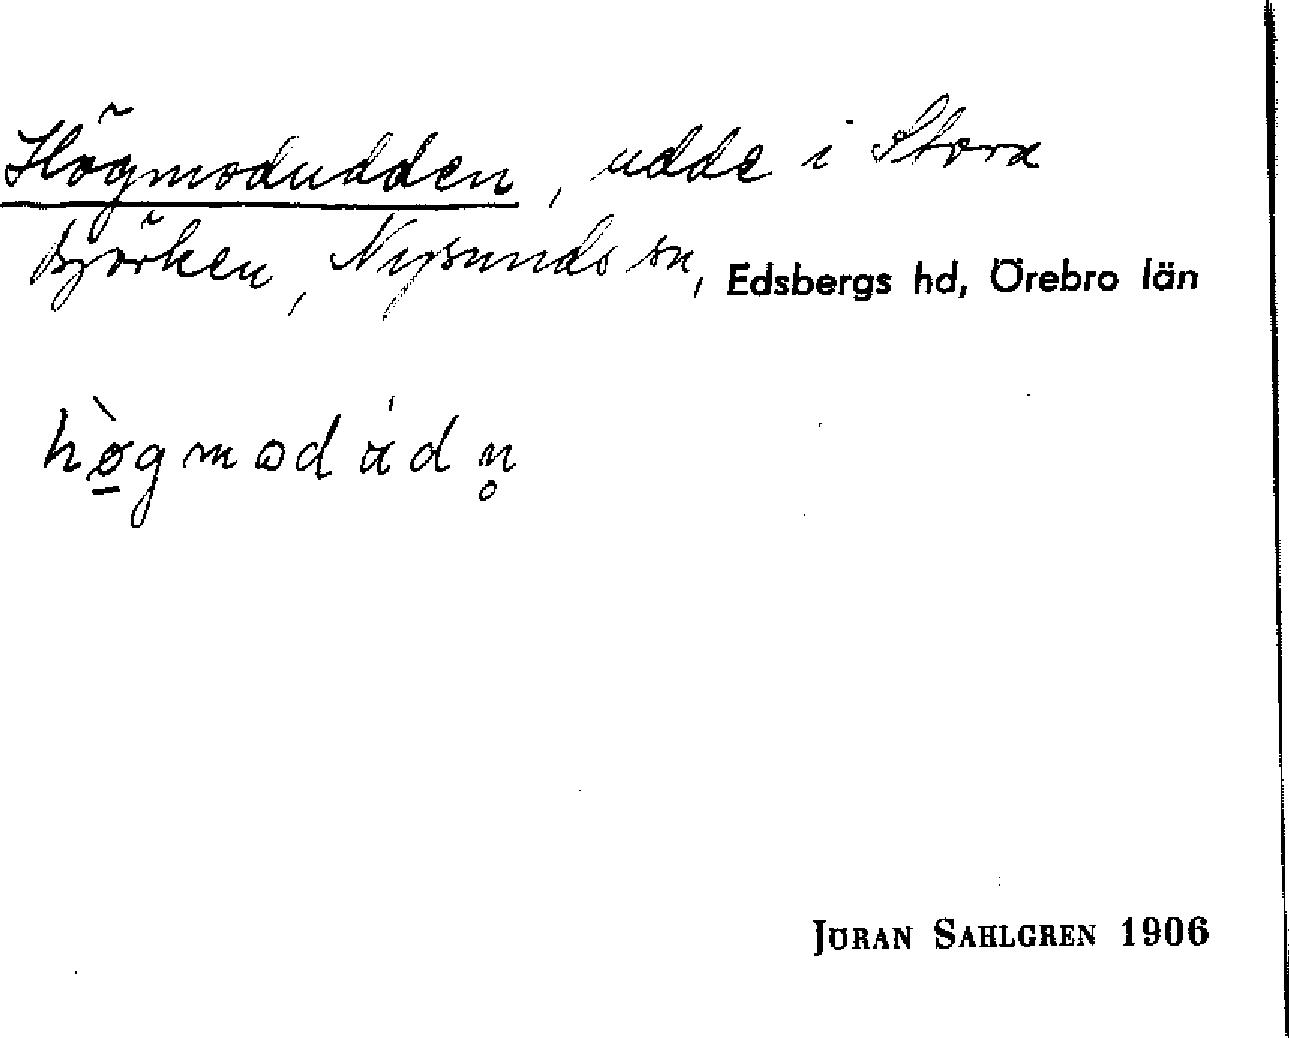 Högmodudden, udde i Stora
Björken, Nysunds sn, Edsbergs hd, Örebro län
hø̠̀gmodúdn̥
JÖRAN SAHLGREN 1906